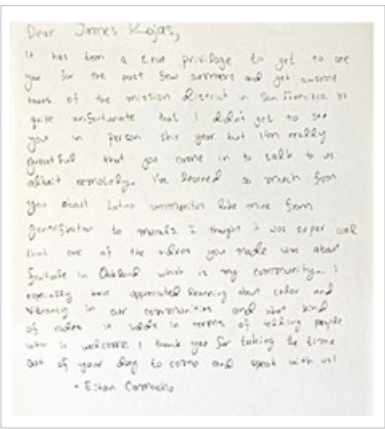 Dear James Rojas,
it has been a true privilege to get to see
you for the past few summers and get awesome
tours of the mission District in San Francisco. Its
quite unfortunate that I didn't get to see
you in person this year but I'm really
greatful that you came in to talk to us
albeit remotely. I've learned so much from
you about Latino communities like mine from
gentrification to murals. I thought it was super cool
that one of the videos you made was about
fruitvale in Oakland which is my community. I
especially have appreciated learning about color and
vibrancy in our communities and what kind
of it holds in terms of telling people
who is welcome. I thank you for taking the time
out of your day to come and speak with us!
- Ethan Camacho